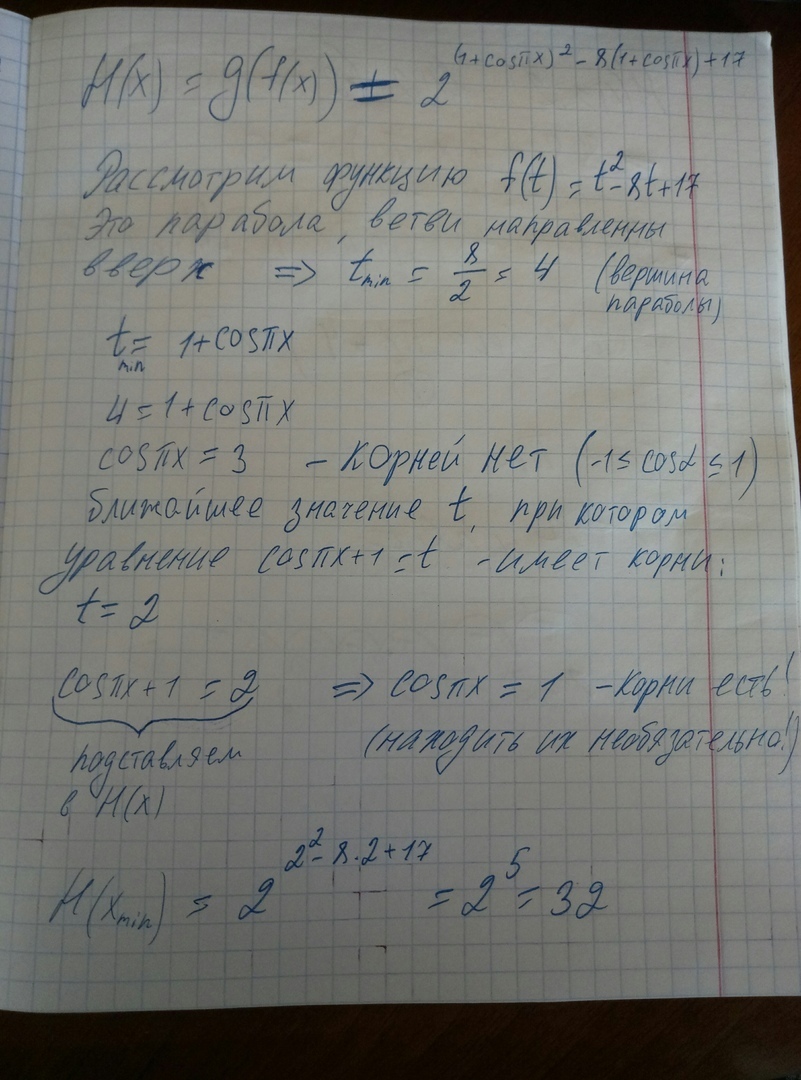 H(x) = g(f(x)) = 2^(1+cosπx)² - 8(1+cosπx)+17
Рассмотрим функцию f(t) = t²-8t+17
Это парабола, ветви направленны
вверх => t_min = 8/2 = 4 (вершина
параболы)
t_min = 1+cosπx
4 = 1+cosπx
cosπx = 3 - корней нет (-1 ≤ cosα ≤ 1)
ближайшее значение t, при котором
уравнение cosπx+1 = t - имеет корни:
t = 2
cosπx+1 = 2 => cosπx = 1 - корни есть!
(находить их необязательно!)
подставляем
в H(x)
H(x_min) = 2^2²-8·2+17 = 2^5 = 32